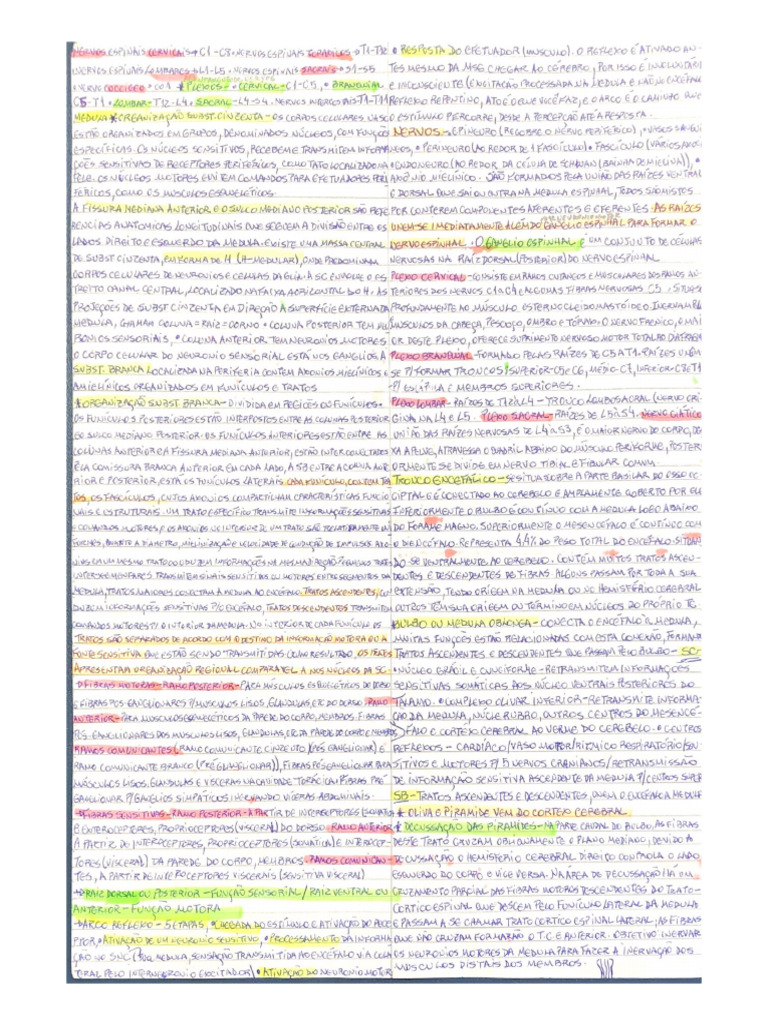 NERVOS ESPINAIS CERVICAIS → C1-C8 • NERVOS ESPINAIS TORÁCICOS → T1-T12
• NERVOS ESPINAIS LOMBARES → L1-L5 • NERVOS ESPINAIS SACRAIS → S1-S5
• NERVO COCCÍGEO → CO1 * PLEXOS - CERVICAL - C1-C5, BRANQUIAL
C5-T1 LOMBAR - T12-L4 SACRAL - L4-S4. NERVOS INTERCOSTAIS T1-T11
MEDULA * ORGANIZAÇÃO SUBST. CINZENTA - OS CORPOS CELULARES
ESTÃO ORGANIZADOS EM GRUPOS, DENOMINADOS NÚCLEOS, COM FUNÇÕES
ESPECÍFICAS. OS NÚCLEOS SENSITIVOS, RECEBEM E TRANSMITEM INFORMA
ÇÕES SENSITIVAS DE RECEPTORES PERIFÉRICOS, COMO TATO LOCALIZADO NA
PELE. OS NÚCLEOS MOTORES EMITEM COMANDOS PARA EFETUADORES PERI
FÉRICOS, COMO OS MÚSCULOS ESQUELÉTICOS.
A FISSURA MEDIANA ANTERIOR E O SULCO MEDIANO POSTERIOR SÃO REFE
RÊNCIAS ANATÔMICAS LONGITUDINAIS QUE SEGUEM A DIVISÃO ENTRE OS
LADOS DIREITO E ESQUERDO DA MEDULA. EXISTE UMA MASSA CENTRAL
DE SUBST CINZENTA, EM FORMA DE H (H-MEDULAR), ONDE PREDOMINAM
CORPOS CELULARES DE NEURÔNIOS E CÉLULAS DA GLIA. A SC ENVOLVE O ES
TREITO CANAL CENTRAL, LOCALIZADO NA FAIXA HORIZONTAL DO H. AS
PROJEÇÕES DE SUBST CINZENTA EM DIREÇÃO A SUPERFÍCIE EXTERNA DA
MEDULA, CHAMAR COLUNA = RAIZ = CORNO • COLUNA POSTERIOR TEM NEU
RÔNIOS SENSORIAIS, • COLUNA ANTERIOR TEM NEURÔNIOS MOTORES
O CORPO CELULAR DO NEURÔNIO SENSORIAL ESTÁ NOS GÂNGLIOS. A
SUBST. BRANCA LOCALIZADA NA PERIFERIA CONTÉM AXÔNIOS MIELÍNICOS E
AMIELÍNICOS ORGANIZADOS EM FUNÍCULOS E TRATOS
* ORGANIZAÇÃO SUBST. BRANCA - DIVIDIDA EM REGIÕES OU FUNÍCULOS.
OS FUNÍCULOS POSTERIORES ESTÃO INTERPOSTOS ENTRE AS COLUNAS POSTERIOR
E O SULCO MEDIANO POSTERIOR. OS FUNÍCULOS ANTERIORES ESTÃO ENTRE AS
COLUNAS ANTERIOR E A FISSURA MEDIANA ANTERIOR, ESTÃO INTERCONECTADOS
P/ A COMISSURA BRANCA ANTERIOR EM CADA LADO, A SB ENTRE A COR
RIOR E POSTERIOR, ESTÁ OS FUNÍCULOS LATERAIS CADA FUNÍCULO, CONTÉM TRA
TOS, OS FASCÍCULOS, CUJOS AXÔNIOS COMPACTILHAM CARACTERÍSTICAS FUNCIO
NAIS E ESTRUTURAIS. UM TRATO ESPECÍFICO TRANSMITE INFORMAÇÕES SENSITIVAS
E COMANDOS MOTORES, E OS AXÔNIOS NO INTERIOR DE UM TRATO SÃO RELATIVAMENTE UNI
FORMES, QUANTO A DIÂMETRO, MIELINIZAÇÃO E VELOCIDADE DE CONDUÇÃO DE IMPULSOS. AXÔ
NIOS EM UM MESMO TRATO CONDUZEM INFORMAÇÕES NA MESMA DIREÇÃO. PEQUENOS TRATOS
INTERSEGMENTARES TRANSMITEM SINAIS SENSITIVAS OU MOTORES ENTRE SEGMENTOS DA
MEDULA, TRATOS MAIORES CONECTAM A MEDULA AO ENCÉFALO. TRATOS ASCENDENTES, CON
DUZEM INFORMAÇÕES SENSITIVAS P/ O ENCÉFALO, TRATOS DESCENDENTES TRANSMITEM
COMANDOS MOTORES P/ O INTERIOR DA MEDULA. NO INTERIOR DE CADA FUNÍCULO OS
TRATOS SÃO SEPARADOS DE ACORDO COM O DESTINO DA INFORMAÇÃO MOTORA OU A
FONTE SENSITIVA QUE ESTÃO SENDO TRANSMITIDAS COMO RESULTADO, OS TRATOS
APRESENTAM ORGANIZAÇÃO REGIONAL COMPARÁVEL A NOS NÚCLEOS DA SC.
→ FIBRAS MOTORAS - RAMO POSTERIOR - PARA MÚSCULOS ESQUELÉTICOS DO DORSO
E FIBRAS PÓS GANGLIONARES P/ MÚSCULOS LISOS, GLÂNDULAS, ETC DO DORSO. RAMO
ANTERIOR - PARA MÚSCULOS ESQUELÉTICOS DA PAREDE DO CORPO, MEMBROS. FIBRAS
PÓS-GANGLIONARES DOS MÚSCULOS LISOS, GLÂNDULAS, ETC DA PAREDE DO CORPO E MEMBROS
RAMOS COMUNICANTES: RAMO COMUNICANTE CINZENTO (PÓS GANGLIONAR) E
RAMO COMUNICANTE BRANCO (PRÉ GANGLIONAR), FIBRAS PÓS GANGLIONAR PARA
MÚSCULOS LISOS, GLÂNDULAS E VÍSCERAS NA CAVIDADE TORÁCICA. FIBRAS PRÉ
GANGLIONAR P/ GÂNGLIOS SIMPÁTICOS INERVANDO VÍSCERAS ABDOMINAIS.
→ FIBRAS SENSITIVAS - RAMO POSTERIOR - A PARTIR DE INTEROCEPTORES
E EXTEROCEPTORES, PROPRIOCEPTORES (VISCERAL) DO DORSO RAMO ANTERIOR
A PARTIR DE INTEROCEPTORES, PROPRIOCEPTORES (SOMÁTICA) E INTEROCEP-
TORES (VISCERAL) DA PAREDE DO CORPO, MEMBROS. RAMOS COMUNICAN-
TES, A PARTIR DE INTEROCEPTORES VISCERAIS (SENSITIVA VISCERAL)
→ RAIZ DORSAL OU POSTERIOR - FUNÇÃO SENSORIAL / RAIZ VENTRAL OU
ANTERIOR - FUNÇÃO MOTORA
→ ARCO REFLEXO - 5 ETAPAS, • CHEGADA DO ESTÍMULO E ATIVAÇÃO DO RECE
PTOR, • ATIVAÇÃO DE UM NEURÔNIO SENSITIVO, • PROCESSAMENTO DA INFORMA
ÇÃO NO SNC (DA MEDULA, SENSAÇÃO TRANSMITIDA AO ENCÉFALO VIA COLA
TERAL PELO INTERNEURÔNIO EXCITADOR) • ATIVAÇÃO DO NEURÔNIO MOTOR
• RESPOSTA DO EFETUADOR (MÚSCULO). O REFLEXO É ATIVADO AN-
TES MESMO DA MSG CHEGAR AO CÉREBRO, POR ISSO É INVOLUNTÁRIO
E INCONSCIENTE (EXCITAÇÃO PROCESSADA NA MEDULA E NÃO NO ENCÉFALO
REFLEXO REPENTINO, ATO É O QUE VOCÊ FAZ, E O ARCO É O CAMINHO QUE
O ESTÍMULO PERCORRE, DESDE A PERCEPÇÃO ATÉ A RESPOSTA.
NERVOS - • EPINEURO (RECOBRE O NERVO PERIFÉRICO), • VASOS SANGUÍ
NEOS, • PERINEURO (AO REDOR DE 1 FASCÍCULO) • FASCÍCULO (VÁRIOS AXÔNI
• ENDONEURO (AO REDOR DA CÉLULA DE SCHWAN (BAINHA DE MIELINA)),
AXÔNIO MIELÍNICO. SÃO FORMADOS PELA UNIÃO DAS RAÍZES VENTRAL
E DORSAL QUE SAI OU ENTRA NA MEDULA ESPINHAL, TODOS SÃO MISTOS
POR CONTEREM COMPONENTES AFERENTES E EFERENTES. AS RAÍZES
UNEM-SE IMEDIATAMENTE ALÉM DO GÂNGLIO ESPINHAL PARA FORMAR O
NERVO ESPINHAL. O GÂNGLIO ESPINHAL É UM CONJUNTO DE CÉLULAS
NERVOSAS NA RAIZ DORSAL (POSTERIOR) DO NERVO ESPINHAL
PLEXO CERVICAL - CONSISTE EM RAMOS CUTÂNEOS E MUSCULARES DOS RAMOS AN
TERIORES DOS NERVOS C1 A C4 E ALGUMAS FIBRAS NERVOSAS C5. SITUA-SE
PROFUNDAMENTE AO MÚSCULO ESTERNOCLEIDOMASTÓIDEO. INERVAM
MÚSCULOS DA CABEÇA, PESCOÇO, OMBRO E TÓRAX. O NERVO FRÊNICO, O MAI
OR DESTE PLEXO, OFERECE SUPRIMENTO NERVOSO MOTOR TOTAL AO DIAFRAGMA
PLEXO BRANQUIAL - FORMADO PELAS RAÍZES DE C5 A T1. RAÍZES UNEM
SE P/ FORMAR TRONCOS: SUPERIOR-C5 e C6, MÉDIO-C7, INFERIOR-C8 e T1
P/ ESCÁPULA E MEMBROS SUPERIORES.
PLEXO LOMBAR - RAÍZES DE T12 à L4 - TRONCO LOMBOSACRAL (NERVO ORI
GINA NA L4 E L5. PLEXO SACRAL - RAÍZES DE L5 à S4. NERVO CIÁTICO
UNIÃO DAS RAÍZES NERVOSAS DE L4 à S3, É O MAIOR NERVO DO CORPO, DE
IXA A PELVE, ATRAVESSA O QUADRIL ABAIXO DO MÚSCULO PIRIFORME, POSTERI
ORMENTE SE DIVIDE EM NERVO TIBIAL E FIBULAR COMUM.
TRONCO ENCEFÁLICO - SE SITUA SOBRE A PARTE BASILAR DO OSSO OC
CIPTAL E É CONECTADO AO CEREBELO E AMPLAMENTE COBERTO POR ELE
INFERIORMENTE O BULBO É CONTÍNUO COM A MEDULA LOGO ABAIXO
DO FORAME MAGNO. SUPERIORMENTE O MESENCÉFALO É CONTÍNUO COM
O DIENCÉFALO. REPRESENTA 4,4% DO PESO TOTAL DO ENCÉFALO. SITUAN
DO-SE VENTRALMENTE AO CEREBELO. CONTÉM MUITOS TRATOS ASCEN-
DENTES E DESCENDENTES DE FIBRAS. ALGUNS PASSAM POR TODA A SUA
EXTENSÃO, TENDO ORIGEM NA MEDULA OU NO HEMISFÉRIO CEREBRAL
OUTROS TEM SUA ORIGEM OU TÉRMINO EM NÚCLEOS DO PRÓPRIO TE
BULBO OU MEDULA OBLONGA - CONECTA O ENCÉFALO À MEDULA,
MUITAS FUNÇÕES ESTÃO RELACIONADAS COM ESTA CONEXÃO, FORMAM
TRATOS ASCENDENTES E DESCENDENTES QUE PASSAM PELO BULBO - SC:
• NÚCLEO GRÁCIL E CUNEIFORME - RETRANSMITEM INFORMAÇÕES
SENSITIVAS SOMÁTICAS AOS NÚCLEO VENTRAIS POSTERIORES DO
TÁLAMO. • COMPLEXO OLIVAR INFERIOR - RETRANSMITE INFORMA-
ÇÃO DA MEDULA, NÚCLE RUBRO, OUTROS CENTROS DO MESENCÉ-
FALO E CÓRTEX CEREBRAL AO VERME DO CEREBELO. • CENTROS
REFLEXOS - CARDÍACO/VASO MOTOR/RÍTMICO RESPIRATÓRIO/SEN
SITIVOS E MOTORES P/ 5 NERVOS CRANIANOS/RETRANSMISSÃO
DE INFORMAÇÃO SENSITIVA ASCENDENTE DA MEDULA P/ CENTROS SUPER
SB - TRATOS ASCENDENTES E DESCENDENTES, UNEM O ENCÉFALO À MEDULA
* OLIVA E PIRÂMIDE VEM DO CÓRTEX CEREBRAL
* DECUSSAÇÃO DAS PIRÂMIDES - NA PARTE CAUDAL DO BULBO, AS FIBRAS
DESTE TRATO CRUZAM OBLIQUAMENTE O PLANO MEDIANO, DEVIDO A
DECUSSAÇÃO O HEMISFÉRIO CEREBRAL DIREITO CONTROLA O LADO
ESQUERDO DO CORPO E VICE VERSA. NA ÁREA DE DECUSSAÇÃO HÁ UM
CRUZAMENTO PARCIAL DAS FIBRAS MOTORAS DESCENDENTES DO TRATO-
CORTICO ESPINHAL QUE DESCEM PELO FUNÍCULO LATERAL DA MEDULA
E PASSAM A SE CHAMAR TRATO CORTICO ESPINHAL LATERAL, AS FIBRAS
QUE NÃO CRUZAM FORMARÃO O T.C.E ANTERIOR. OBJETIVO INERVAR
OS NEURÔNIOS MOTORES DA MEDULA PARA FAZER A INERVAÇÃO DOS
MÚSCULOS DISTAIS DOS MEMBROS.